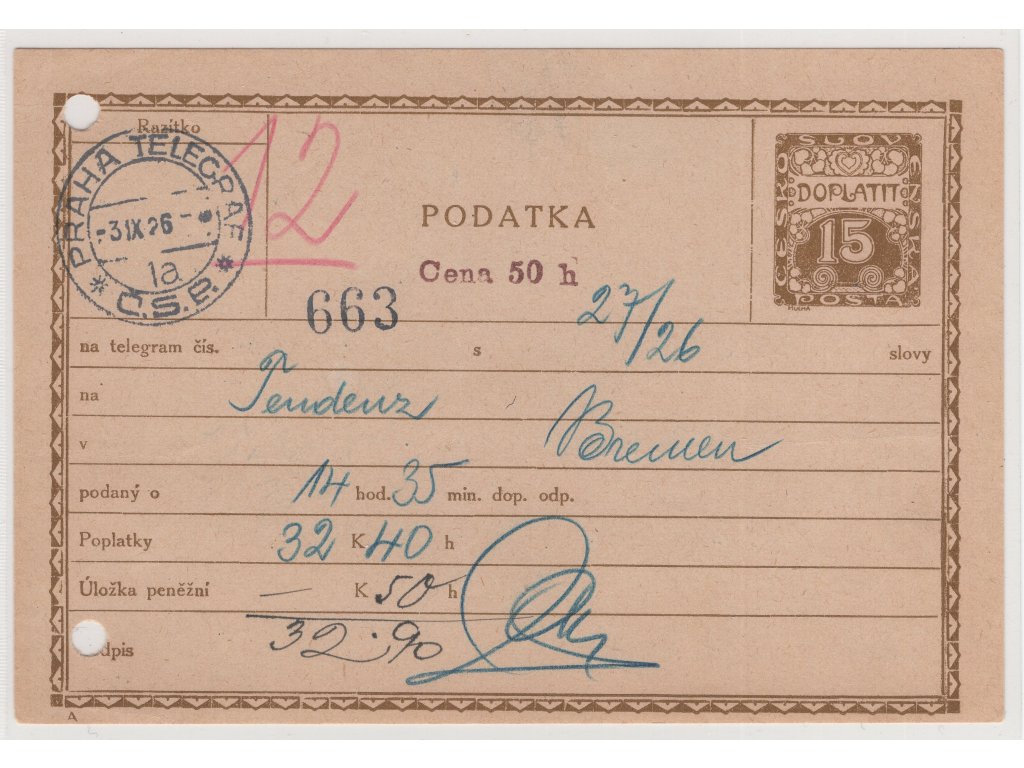 Razítko
12
PRAHA TELEGRAF
-3 IX 26 -
1a
* Č.S.P. *
PODATKA
Cena 50 h
663
ČESKO SLOV ENSKÁ
DOPLATIT
15
POŠTA
MUCHA
27/26
na telegram čís. s slovy
na Tendenz
v Bremen
podaný o 14 hod. 35 min. dop. odp.
Poplatky 32 K 40 h
Úložka peněžní — K 50 h
dpis 32.90
A